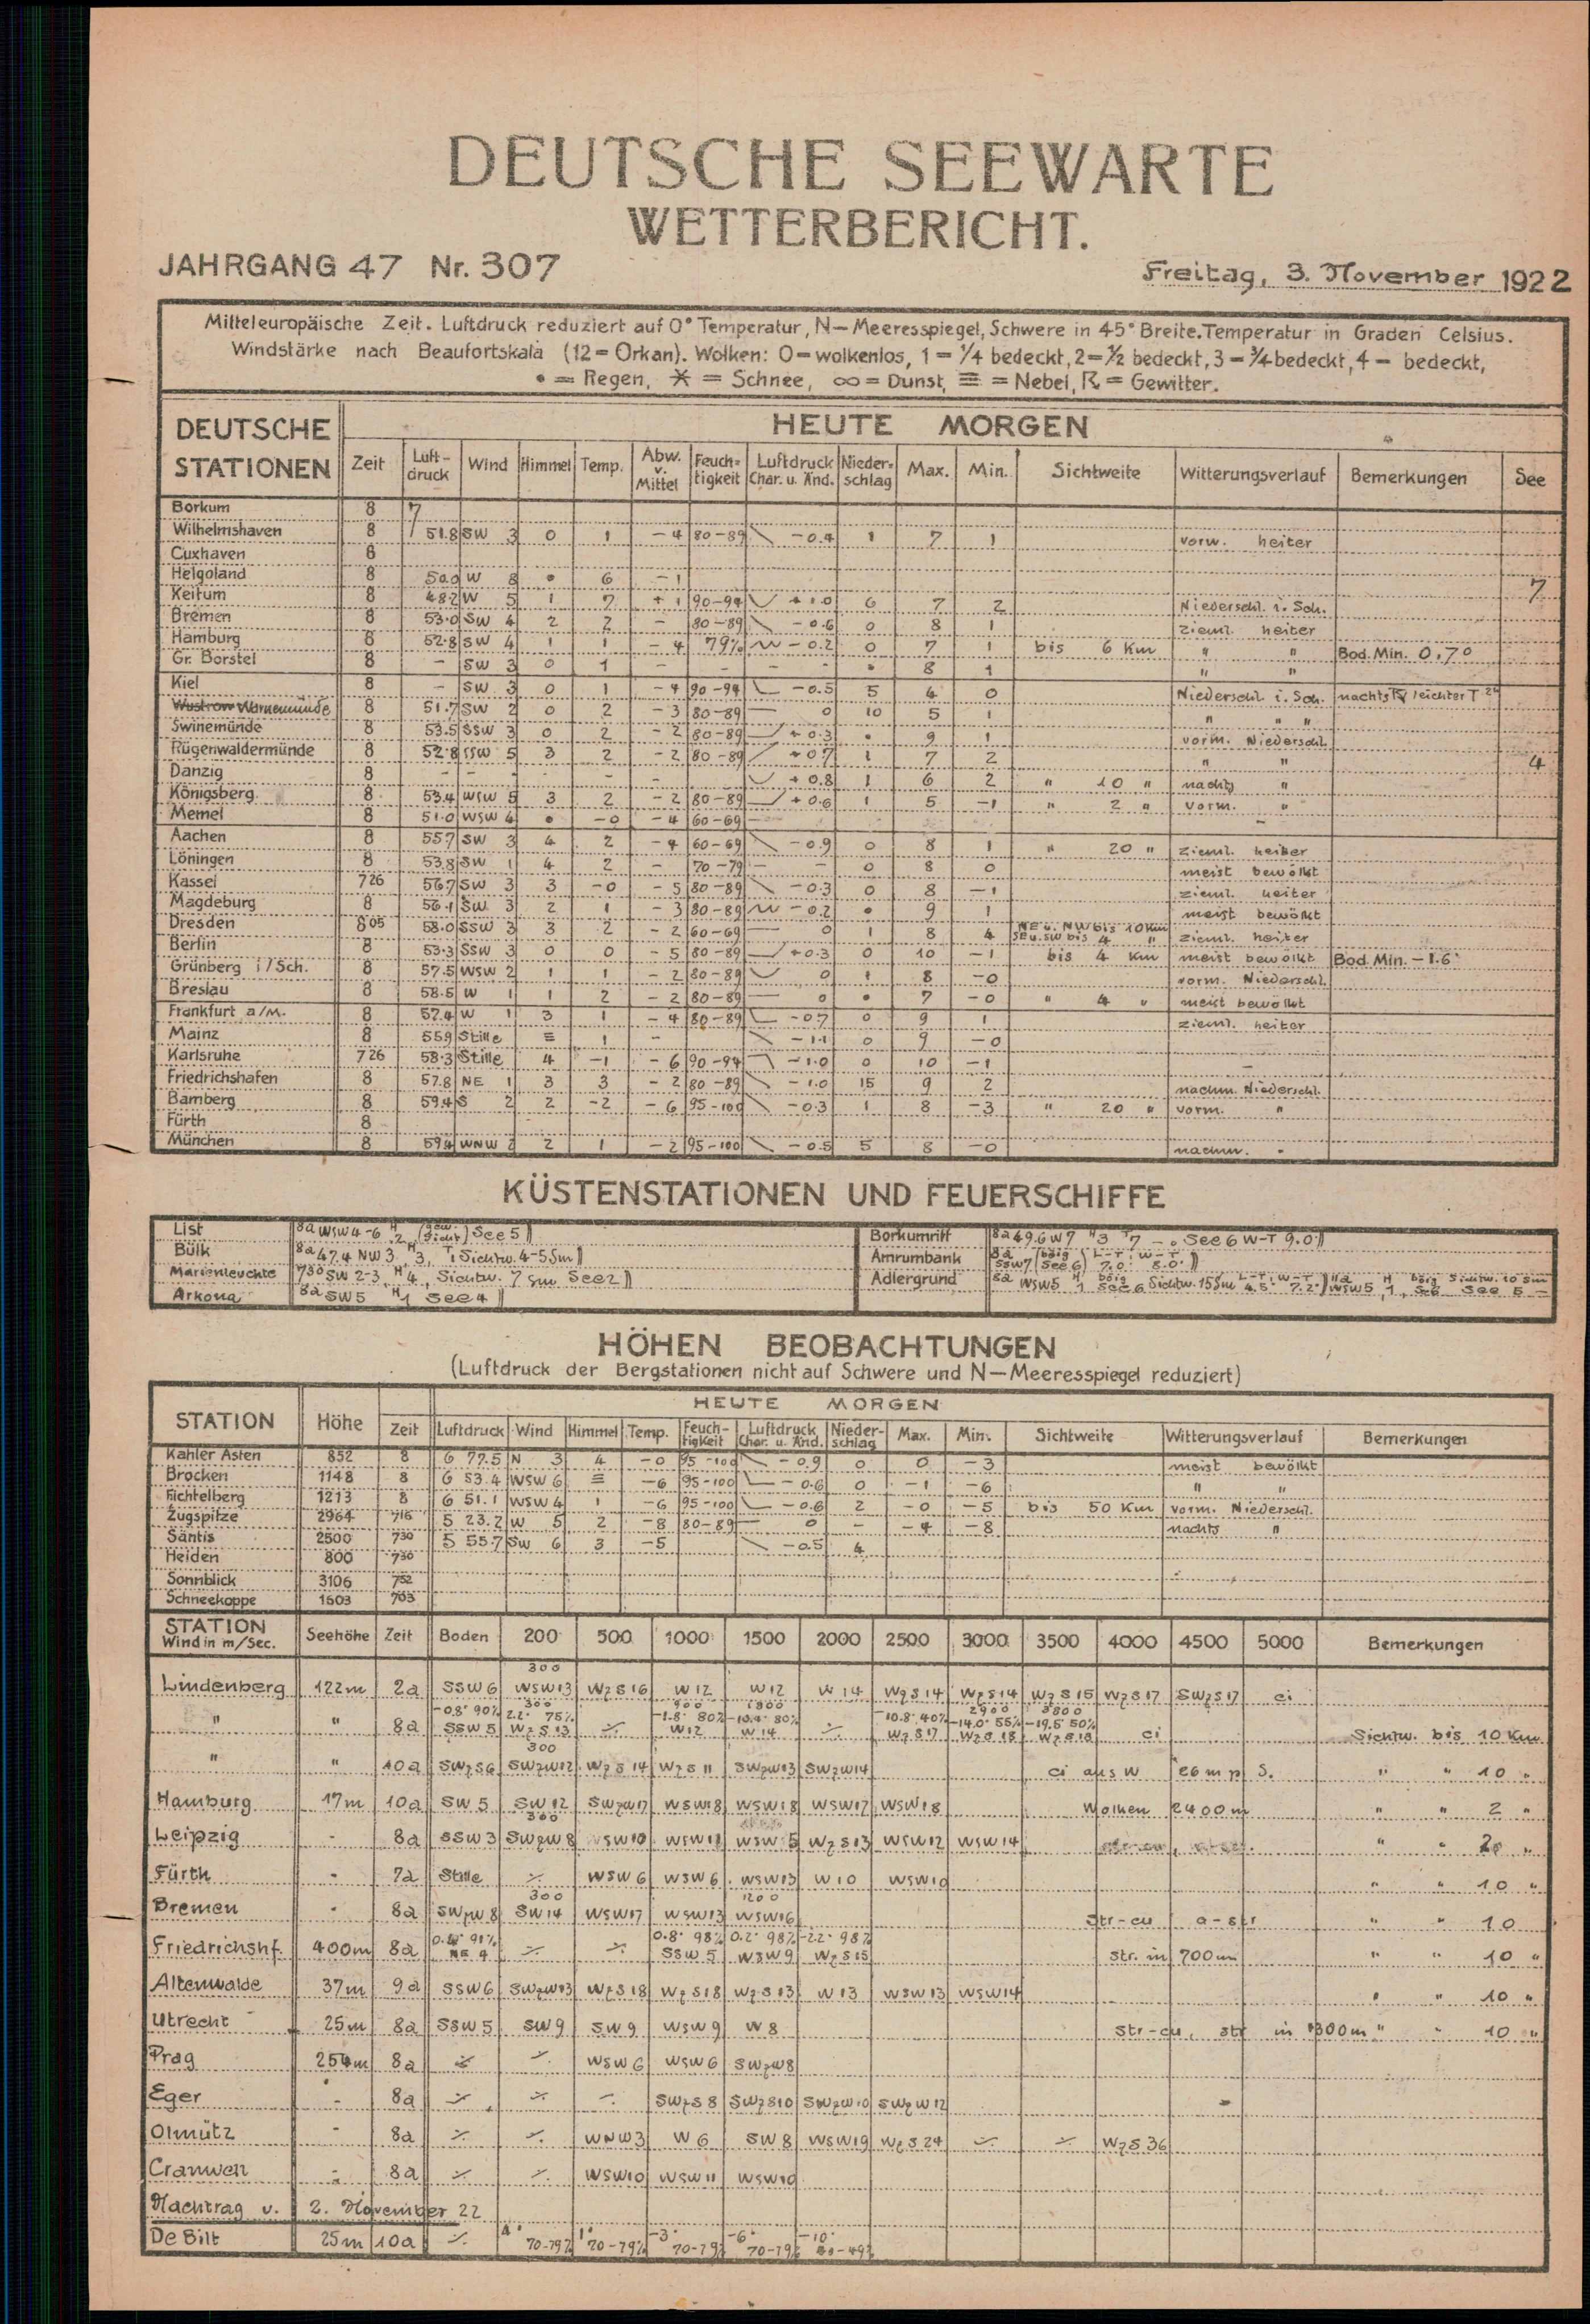 DEUTSCHE SEEWARTE
WETTERBERICHT.
JAHRGANG 47 Nr. 307
Freitag, 3. November 1922
Mitteleuropäische Zeit. Luftdruck reduziert auf 0° Temperatur, N—Meeresspiegel, Schwere in 45° Breite. Temperatur in Graden Celsius.
Windstärke nach Beaufortskala (12 = Orkan). Wolken: 0 = wolkenlos, 1 = ¼ bedeckt, 2 = ½ bedeckt, 3 = ¾ bedeckt, 4 = bedeckt,
• = Regen, ✶ = Schnee, ∞ = Dunst, ≡ = Nebel, ☈ = Gewitter.
DEUTSCHE STATIONEN HEUTE MORGEN
Zeit Luft-druck Wind Himmel Temp. Abw. v. Mittel Feuch-tigkeit Luftdruck Char. u. Änd. Nieder-schlag Max. Min. Sichtweite Witterungsverlauf Bemerkungen See
Borkum 8 7
Wilhelmshaven 8 51.8 SW 3 0 1 −4 80−89 −0.4 1 7 1 vorw. heiter
Cuxhaven 8
Helgoland 8 50.0 W 8 • 6 −1 7
Keitum 8 48.2 W 5 1 7 +1 90−94 +1.0 6 7 2 Niederschl. i. Sch.
Bremen 8 53.0 SW 4 2 2 − 80−89 −0.6 0 8 1 zieml. heiter
Hamburg 8 52.8 SW 4 1 1 −4 79% −0.2 0 7 1 bis 6 Km " " Bod. Min. 0,7°
Gr. Borstel 8 − SW 3 0 1 − − − − • 8 1 " "
Kiel 8 − SW 3 0 1 −4 90−94 −0.5 5 4 0 Niederschl. i. Sch. nachts ☈ leichter T
Wustrow Warnemünde 8 51.7 SW 2 0 2 −3 80−89 0 10 5 1 " " "
Swinemünde 8 53.5 SSW 3 0 2 −2 80−89 +0.3 • 9 1 vorm. Niederschl.
Rügenwaldermünde 8 52.8 SSW 5 3 2 −2 80−89 +0.7 1 7 2 " " 4
Danzig 8 − − − − − +0.8 1 6 2 " 10 " nachts "
Königsberg 8 53.4 WSW 5 3 2 −2 80−89 +0.6 1 5 −1 " 2 " vorm. "
Memel 8 51.0 WSW 4 • −0 −4 60−69 − −
Aachen 8 55.7 SW 3 4 2 −4 60−69 −0.9 0 8 1 " 20 " zieml. heiter
Löningen 8 53.8 SW 1 4 2 − 70−79 − − 0 8 0 meist bewölkt
Kassel 7 26 56.7 SW 3 3 −0 −5 80−89 −0.3 0 8 −1 zieml. heiter
Magdeburg 8 56.1 SW 3 2 1 −3 80−89 −0.2 • 9 1 meist bewölkt
Dresden 8 05 58.0 SSW 3 3 2 −2 60−69 0 1 8 4 NE u. NW bis 10 Km SE u. SW bis 4 " zieml. heiter
Berlin 8 53.3 SSW 3 0 0 −5 80−89 +0.3 0 10 −1 bis 4 Km meist bewölkt Bod. Min. −1.6°
Grünberg i/Sch. 8 57.5 WSW 2 1 1 −2 80−89 0 1 8 −0 vorm. Niederschl.
Breslau 8 58.5 W 1 1 2 −2 80−89 0 • 7 −0 " 4 " meist bewölkt
Frankfurt a/M. 8 57.4 W 1 3 1 −4 80−89 −0.7 0 9 1 zieml. heiter
Mainz 8 55.9 Stille ≡ 1 − −1.1 0 9 −0
Karlsruhe 7 26 58.3 Stille 4 −1 −6 90−94 −1.0 0 10 −1 −
Friedrichshafen 8 57.8 NE 1 3 3 −2 80−89 −1.0 15 9 2 nachm. Niederschl.
Bamberg 8 59.4 S 2 2 −2 −6 95−100 −0.3 1 8 −3 " 20 " vorm. "
Fürth 8
München 8 59.4 WNW 2 2 1 −2 95−100 −0.5 5 8 −0 nachm. "
KÜSTENSTATIONEN UND FEUERSCHIFFE
List 8a WSW 4-6 H 2 See 5
Bülk 8a 47.4 NW 3 H 3, T 1 Sichtw. 4-5 Sm
Marienleuchte 7 30 SW 2-3 H 4, Sichtw. 7 Sm See 2
Arkona 8a SW 5 H 1 See 4
Borkumriff 8a 49.6 W 7 H 3 T 7 − See 6 W-T 9.0°
Amrumbank 8a SSW 7 (böig See 6) L-T 7.0° W-T 8.0°
Adlergrund 8a WSW 5 H 1 böig See 6 Sichtw. 15 Sm L-T 4.5° W-T 7.2° 11a WSW 5 H 1, böig Sichtw. 10 Sm See 5 −
HÖHEN BEOBACHTUNGEN
(Luftdruck der Bergstationen nicht auf Schwere und N—Meeresspiegel reduziert)
STATION Höhe HEUTE MORGEN
Zeit Luftdruck Wind Himmel Temp. Feuch-tigkeit Luftdruck Char. u. Änd. Nieder-schlag Max. Min. Sichtweite Witterungsverlauf Bemerkungen
Kahler Asten 852 8 6 77.5 N 3 4 −0 95−100 −0.9 0 0 −3 meist bewölkt
Brocken 1148 8 6 53.4 WSW 6 ≡ −6 95−100 −0.6 0 −1 −6 " "
Fichtelberg 1213 8 6 51.1 WSW 4 1 −6 95−100 −0.6 2 −0 −5 bis 50 Km vorm. Niederschl.
Zugspitze 2964 7 16 5 23.2 W 5 2 −8 80−89 0 − −4 −8 nachts "
Säntis 2500 7 30 5 55.7 SW 6 3 −5 −0.5 4
Heiden 800 7 30
Sonnblick 3106 7 52
Schneekoppe 1603 7 03
STATION Wind in m/Sec. Seehöhe Zeit Boden 200 500 1000 1500 2000 2500 3000 3500 4000 4500 5000 Bemerkungen
300
Lindenberg 122m 2a SSW 6 WSW 13 WzS 16 W 12 W 12 W 14 WzS 14 WzS 14 WzS 15 WzS 17 SWzS 17 ci
300 900 1800 2900 3800
−0.8° 90% 2.2° 75% −1.8° 80% −10.4° 80% −10.8° 40% −14.0° 55% −19.5° 50%
" " 8a SSW 5 WzS 13 ⁒ W 12 W 14 ⁒ WzS 17 WzS 18 WzS 18 ci Sichtw. bis 10 Km
300
" " 10a SWzS 6 SWzW 12 WzS 14 WzS 11 SWzW 13 SWzW 14 ci aus W 26 m p. S. " " 10 "
Hamburg 17m 10a SW 5 SW 12 SWzW 17 WSW 18 WSW 18 WSW 17 WSW 18 Wolken 2400 m " " 2 "
300
Leipzig - 8a SSW 3 SWzW 8 WSW 10 WSW 11 WSW 5 WzS 13 WSW 12 WSW 14 " " 20 "
Fürth - 7a Stille ⁒ WSW 6 WSW 6 WSW 13 W 10 WSW 10 " " 10 "
300 1200
Bremen - 8a SWzW 8 SW 14 WSW 17 WSW 13 WSW 16 Str-cu a-str " " 10
91% 0.8° 98% 0.2° 98% −2.2° 98%
Friedrichshf. 400m 8a NE 4 ⁒ ⁒ SSW 5 WSW 9 WzS 15 Str. in 700 m " " 10 "
Altenwalde 37m 9a SSW 6 SWzW 13 WzS 18 WzS 18 WzS 13 W 13 WSW 13 WSW 14 " " 10 "
Utrecht 25m 8a SSW 5 SW 9 SW 9 WSW 9 W 8 Str-cu, str in 1300 m " " 10 "
Prag 254m 8a ⁒ ⁒ WSW 6 WSW 6 SWzW 8
Eger - 8a ⁒ ⁒ ⁒ SWzS 8 SWzS 10 SWzW 10 SWzW 12 -
Olmütz - 8a ⁒ ⁒ WNW 3 W 6 SW 8 WSW 19 WzS 24 ⁒ ⁒ WzS 36
Cranwell - 8a ⁒ ⁒ WSW 10 WSW 11 WSW 10
Nachtrag v. 2. November 22
De Bilt 25m 10a ⁒ 4° 70-79% 1° 70-79% −3° 70-79% −6° 70-79% −10°